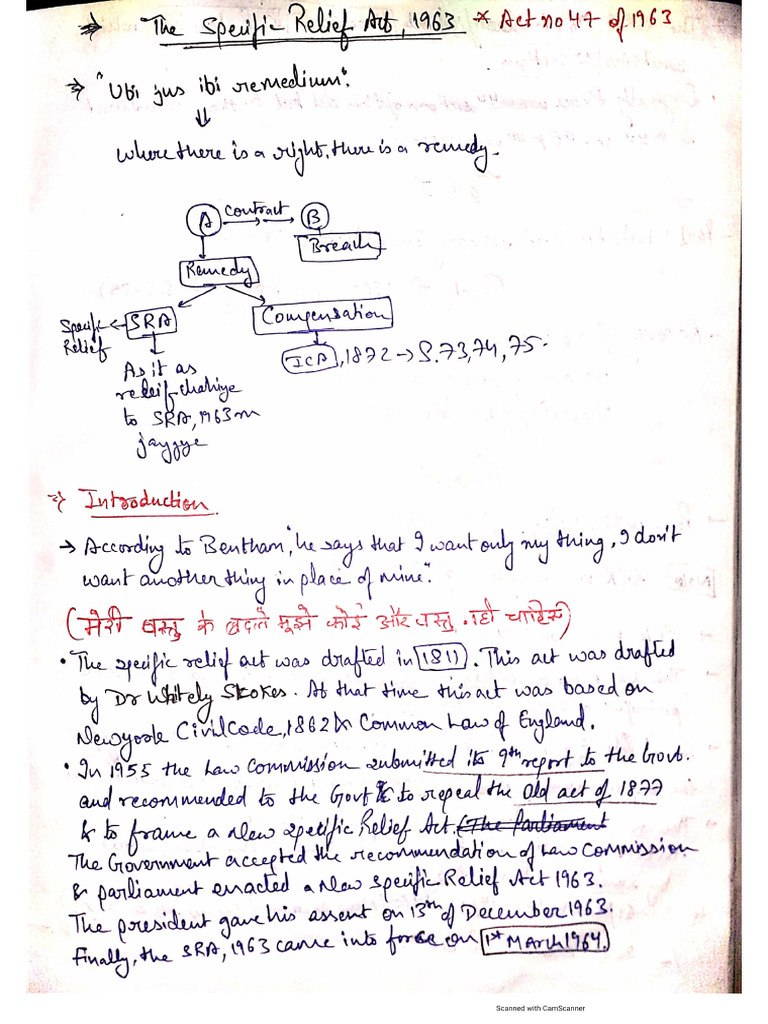 ⇒ The Specific Relief Act, 1963 * Act no 47 of 1963
⇒ "Ubi jus ibi remedium".
⇓
Where there is a right, there is a remedy.
A contract B
Breach
Remedy
Specific Relief ← SRA
Compensation
ICA, 1872 → S.73, 74, 75.
As it as
releif chahiye
to SRA, 1963 m
jayyye
⇒ Introduction
→ According to Bentham, "he says that I want only my thing, I don't
want another thing in place of mine".
(मेरी वस्तु के बदले मुझे कोई और वस्तु नहीं चाहिए)
• The specific relief act was drafted in 1811. This act was drafted
by Dr Whitely Stokes. At that time this act was based on
Newyork Civil Code, 1862 & Common Law of England.
• In 1955 the Law Commission submitted its 9th report to the Govt.
and recommended to the Govt to repeal the old act of 1877
& to frame a New Specific Relief Act. (The Parliament
The Government accepted the recommendation of Law Commission
& parliament enacted a New Specific Relief Act 1963.
The president gave his assent on 13th of December 1963.
Finally, the SRA, 1963 came into force on 1st March 1964.
Scanned with CamScanner